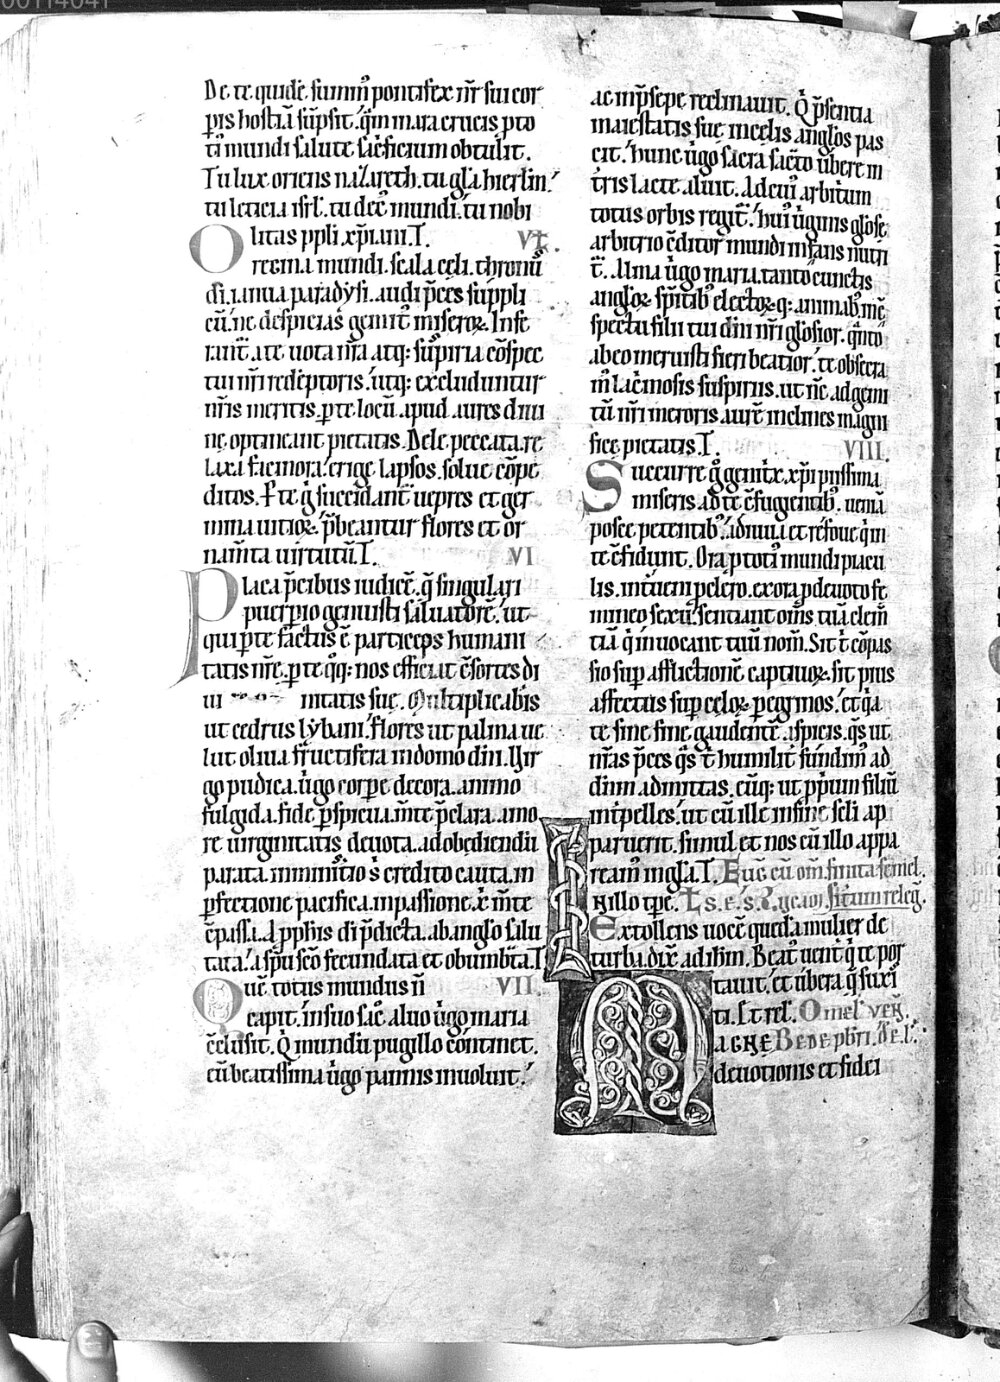 00114041
De te quidē. summ᷒ pontifex nr̄ sui cor
pis hostiā sūpsit. q̄m in ara crucis p to
ti᷒ mundi salute sac̄ficium obtulit.
Tu lux oriens nazareth. tu gl̄a hierlm̄.
tu leticia isrl̄. tu dec᷒ mundi. tu nobi
litas ppli xp̄iani. T. V
O regina mundi. scala celi. thron᷒
dī. ianua paradysi. audi p̄ces suppli
cū. ne despicias gemit᷒ miseroꝝ. Infe
rant᷑ a te uota nr̄a atq: suspiria c̄spec
tui nr̄i redēptoris. utq: excluduntur
nr̄is meritis. p te locū apud aures diui
ne optineant pietatis. Dele peccata. re
laxa facinora. erige lapsos. solue cōpe
ditos. P te q̄ succidant᷑ uepres et ger
mina uitioꝝ. p̄beantur flores et or
nam̄ta uirtutū. T. VI
Placa p̄cibus iudicē. q̄ singulari
puerperio genuisti saluatorē. ut
qui p te factus ē particeps humani
tatis nr̄e. p te q̄q: nos efficiat c̄sortes di
ui nitatis sue. Multiplicabis
ut cedrus lybani. flores ut palma. ue
lut oliua fructifera in domo dn̄i. Uir
go pudica. uirgo corpe decora. animo
fulgida. fide pspicua. m̄te p̄clara. amo
re uirginitatis deuota. ad obediendū
parata. in initio s̄ credito cauta. in
pfectione pacifica. in passione x̄ m̄te
c̄passa. A pphis di p̄dicta. ab anglo salu
tata. a sp̄u sc̄o fecundata et obumbr̄ta. T.
Quē totus mundus n̄ VII.
capit. in suo sac̄ aluo uirgo maria
c̄clusit. Q̄ mundū pugillo continet.
cū beatissima uirgo pannis inuoluit.
ac in p̄sepe reclinauit. Q̄ p̄sentia
maiestatis sue in celis anglos pas
cit. hunc uirgo sacra sac̄to ubere m
tris lacte aluit. Ad cui᷒ arbitrium
totus orbis regit᷑. hui᷒ uirginis gl̄ose
arbitrio c̄ditor mundi infans nutri
t᷑. Alma uirgo maria. tanto cunctis
angloꝝ spitib᷒ electoꝝ q: animab᷒ in c̄
spectu filii tui dn̄i nr̄i gl̄osior. q̄nto
ab eo meruisti fieri beatior. te obsecra
m᷒ lac̄mosis suspiriis. ut n̄c ad gemi
tū nr̄i meroris. aurē inclines magni
fice pietatis. T. VIII.
Succurre ḡ genit̄x xp̄i piissima
miseris ad te c̄fugientib᷒. ueniā
posce petentib᷒. adiuua et refoue q̄ in
te c̄fidunt. Ora p toti᷒ mundi piacu
lis. int̄ueni p clero. exora p deuoto fe
mineo sexu. sentiant om̄s tuā clem̄
tiā q̄ inuocant tuū nom̄. Sit t̄ cōpas
sio sup afflictionē captiuoꝝ. sit pius
affectus sup celoꝝ pegrinos. et q̄ a
te sine fine gaudentē aspicis. q̄s ut
nr̄as p̄ces q̄s t̄ humilit᷑ fundim᷒ ad
dn̄m admittas. eūq: ut p̄prium filiū
int̄pelles. ut cū ille in fine seli ap
paruerit. simul et nos cū illo appa
ream᷒ in gl̄a. T.
In illo tp̄e.
Extollens uocē quedā mulier de
turba. dix᷑ ad ihm̄. Beat᷒ uent̄ q̄ te por
tauit. et ubera q̄ suxi
ti. Et rel̄. Omel᷑ veñ.
Magne Bede pbri. de l̄.
deuotionis et fidei